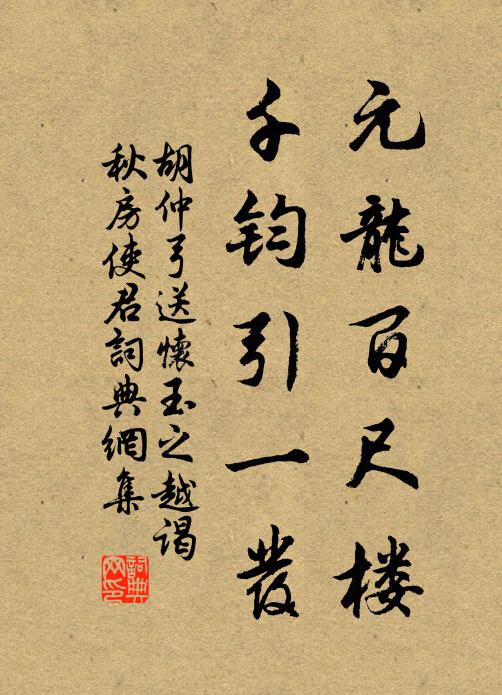 元龍百尺楼
千鈞引一發
胡仲弓送懷玉之越謁
秋房使君詞典網集
詞典
网印